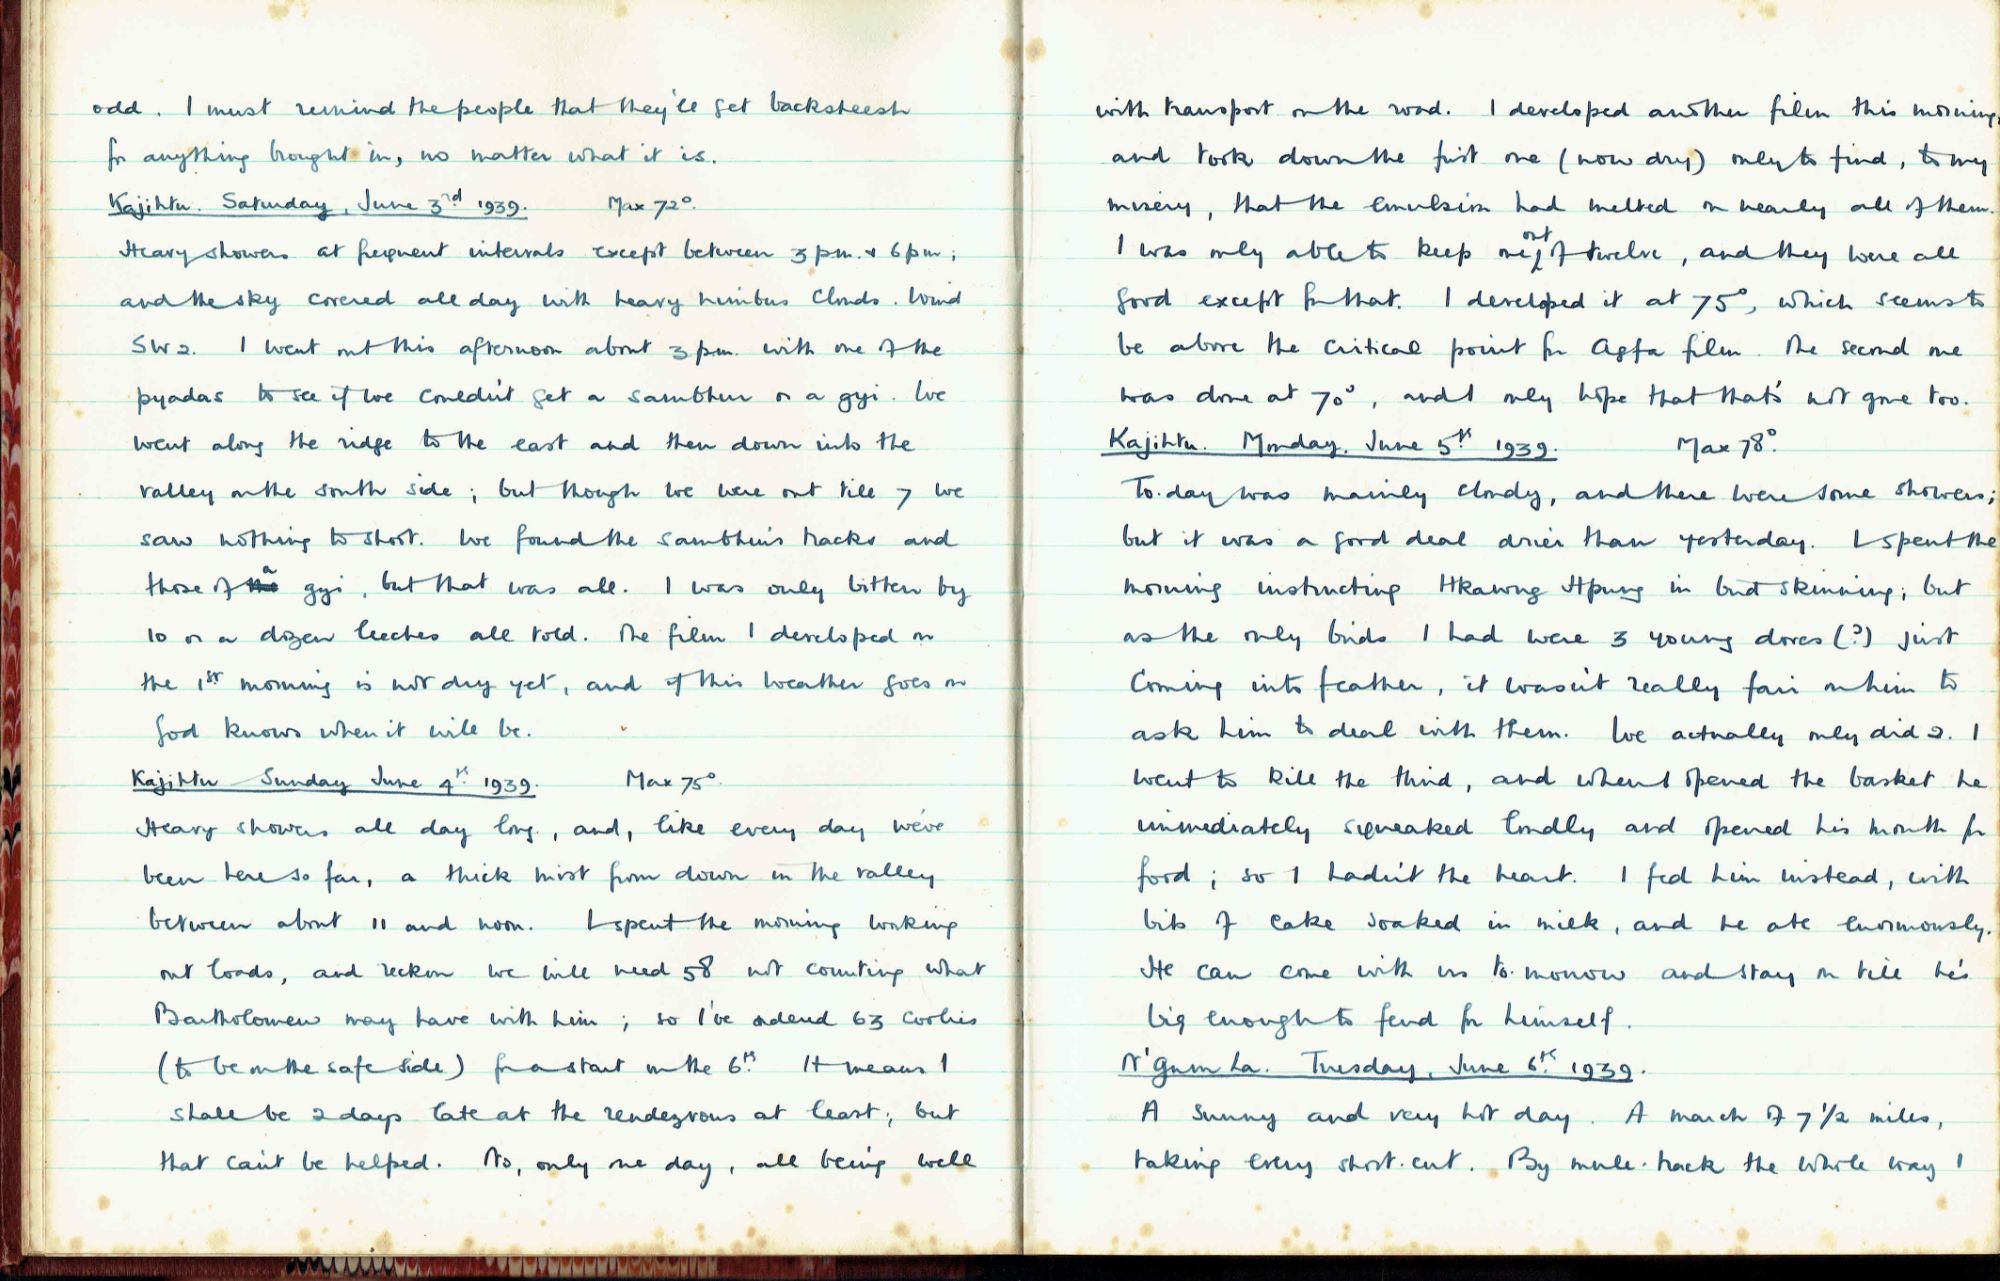 odd. I must remind the people that they'll get backsheesh
for anything brought in, no matter what it is.
Kajihtu. Saturday, June 3rd 1939. Max 72°.
Heavy showers at frequent intervals except between 3 pm. & 6 pm;
and the sky covered all day with heavy nimbus clouds. Wind
SW 2. I went out this afternoon about 3 pm. with one of the
pyadas to see if we couldn't get a sambhur or a gyi. We
went along the ridge to the east and then down into the
valley on the south side; but though we were out till 7 we
saw nothing to shoot. We found the sambhur's tracks and
those of a gyi, but that was all. I was only bitten by
10 or a dozen leeches all told. The film I developed on
the 1st morning is not dry yet, and if this weather goes on
God knows when it will be.
Kajihtu Sunday June 4th 1939. Max 75°.
Heavy showers all day long, and, like every day we've
been here so far, a thick mist from down in the valley
between about 11 and noon. I spent the morning working
out loads, and reckon we will need 58 not counting what
Bartholomew may have with him; so I've ordered 63 coolies
(to be on the safe side) for a start on the 6th. It means I
shall be 2 days late at the rendezvous at least; but
that can't be helped. No, only one day, all being well
with transport on the road. I developed another film this morning,
and took down the first one (now dry) only to find, to my
misery, that the emulsion had melted on nearly all of them.
I was only able to keep one out of twelve, and they were all
good except for that. I developed it at 75°, which seems to
be above the critical point for Agfa film. The second one
was done at 70°, and I only hope that that's not gone too.
Kajihtu. Monday. June 5th 1939. Max 78°.
To-day was mainly cloudy, and there were some showers;
but it was a good deal drier than yesterday. I spent the
morning instructing Hkawng Hpung in bird skinning; but
as the only birds I had were 3 young doves (?) just
coming into feather, it wasn't really fair on him to
ask him to deal with them. We actually only did 2. I
went to kill the third, and when I opened the basket he
immediately squeaked loudly and opened his mouth for
food; so I hadn't the heart. I fed him instead, with
bits of cake soaked in milk, and he ate enormously.
He can come with us to-morrow and stay on till he's
big enough to fend for himself.
N'Gum La. Tuesday, June 6th 1939.
A sunny and very hot day. A march of 7 1/2 miles,
taking every short-cut. By mule-track the whole way I